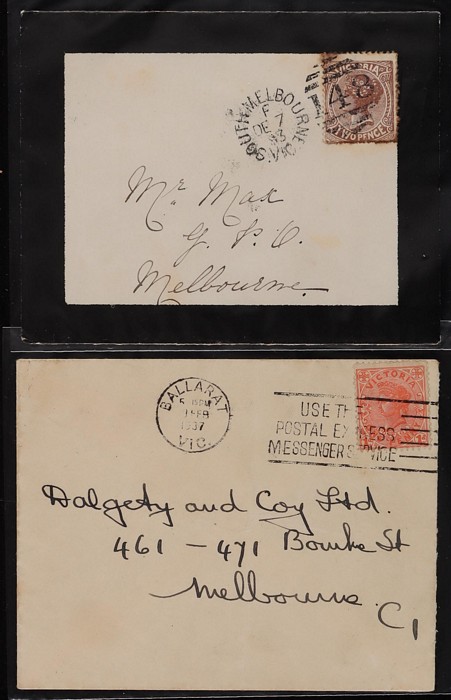 SOUTH MELBOURNE
F
DE 7
93
VIC
148
VICTORIA
TWO PENCE
Mr. Max
G. P. O.
Melbourne
BALLARAT
1 FEB
1937
VIC.
USE TH
POSTAL EX ESS
MESSENGER S VICE
VICTORIA
Dalgety and Coy Ltd.
461 - 471 Bourke St
Melbourne
C1